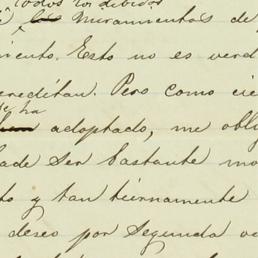 todos los debidos
miramientos de
miento. Esto no es verd
ereditan. Pero como cie
se ha
adoptado, me obli
ade ser bastante mo
to y tan tiernamente
deseo por segunda ve